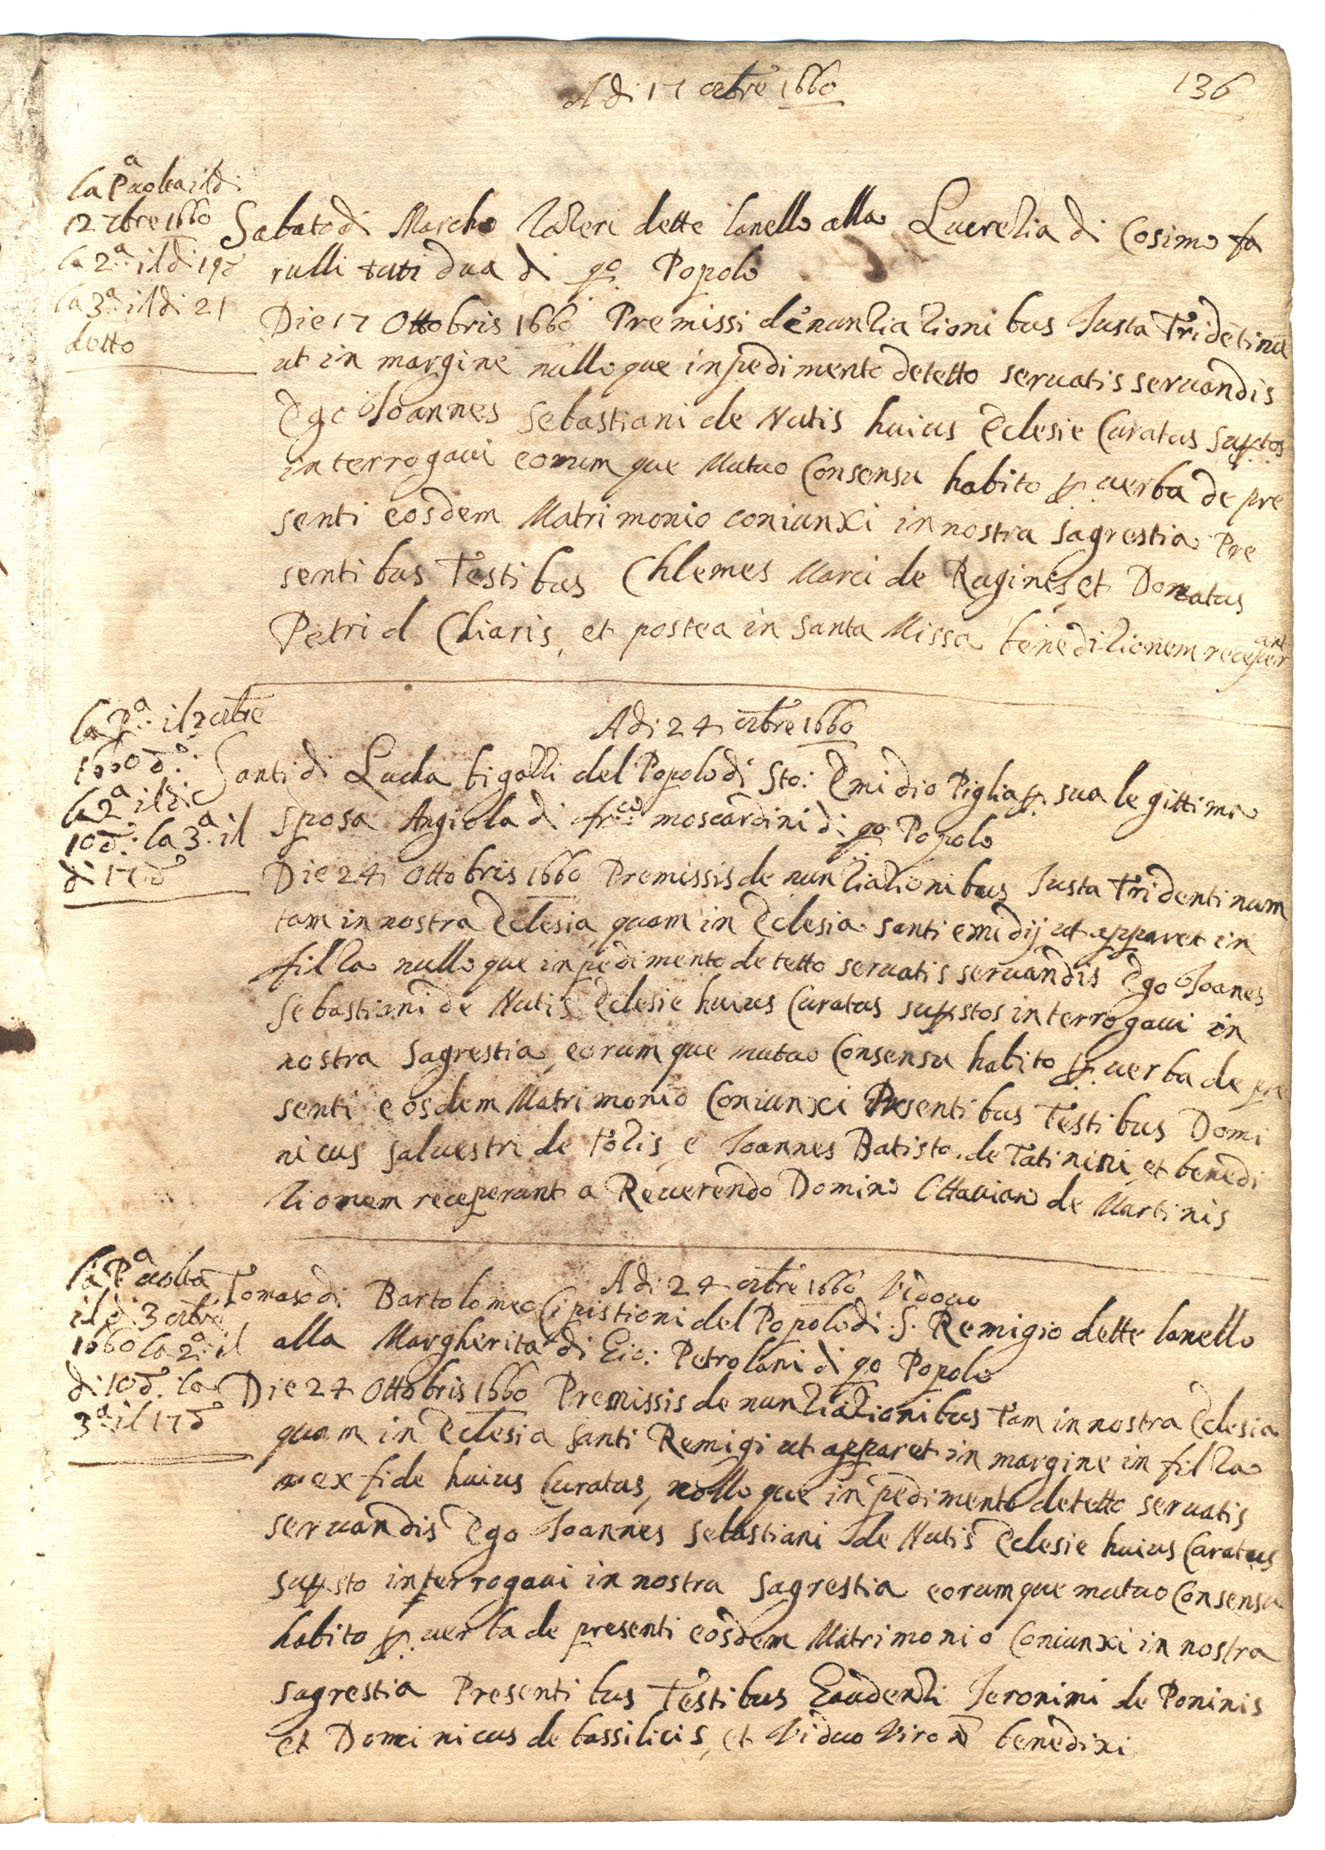 Adi 17 ottbre 1660
136
la Pa uolta il di
12 7bre 1660
la 2a il di 19 d
la 3a il di 21
detto
Sabato di Marcho Valleri dette lanello alla Lucrezia di Cosimo fa
rulli tuti dua di qo Popolo
Die 17 Ottobris 1660 Premissi denunziationibus Iusta Tridetinu
ut in margine nulloque inpedimento detetto seruatis seruandis
Ego Ioannes Sebastiani de Nutis huius Eclesie Curatus suptos
interrogaui eorumque Mutuo Consensu habito p. uerba de pre
senti eosdem Matrimonio coniunxi in nostra sagrestia Pre
sentibus Testibus Chlemes Marci de Ragines, et Donatus
Petri d Chiaris, et postea in Santa Missa beneditionem receper
ant
la Pa. il 3 ottbre
1660 d.
la 2a il di
10 d: la 3a il
di 17 d
Adi 24 ottbre 1660
Santi di Lucha bigalli del Popolo di Sto: Emidio Piglia p. sua legittima
sposa Angiola di frco: moscardini di qo Popolo
Die 24 Ottobris 1660 Premissis denunziationibus Iusta Tridentinum
tam in nostra Eclesia, quam in Eclesia santi emidij ut apparet in
filza nulloque inpedimento detetto seruatis seruandis Ego Ioanes
Sebastiani de Nutis Eclesie huius Curatus supstos interrogaui in
nostra sagrestia, eorumque mutuo Consensu habito p. uerba de pre
senti eosdem Matrimonio Coniunxi Presentibus Testibus Domi
nicus saluestri de Polis, e Ioannes Batista de Tatinini, et benedi
tionem receperunt a Reuerendo Domino Ottauiano de Martinis
la Pa uolta
il di 3 ottbre
1660 la 2a: il
di 10 d. la
3a il 17 d
Adi 24 ottbre 1660 Vidouo
Tomaso di Bartolomeo Cipistioni del Popolo di S. Remigio dette lanello
alla Margherita di Gio: Petrolani di qo Popolo
Die 24 Ottobris 1660 Premissis denunziationibus Tam in nostra Eclesia
quam in Eclesia Santi Remigi ut apparet in margine in filza
ex fide huius Curatus, nulloque inpedimento detetto seruatis
seruandis Ego Ioannes Sebastiani de Nutis Eclesie huius Curatus
supsto interrogaui in nostra sagrestia eorumque mutuo Consensu
habito p. uerba de presenti eosdem Matrimonio Coniunxi in nostra
sagrestia Presentibus Testibus Gaudenzi Ieronimi de Poninis
et Dominicus de bassilicis, et Viduo Viro benedixi